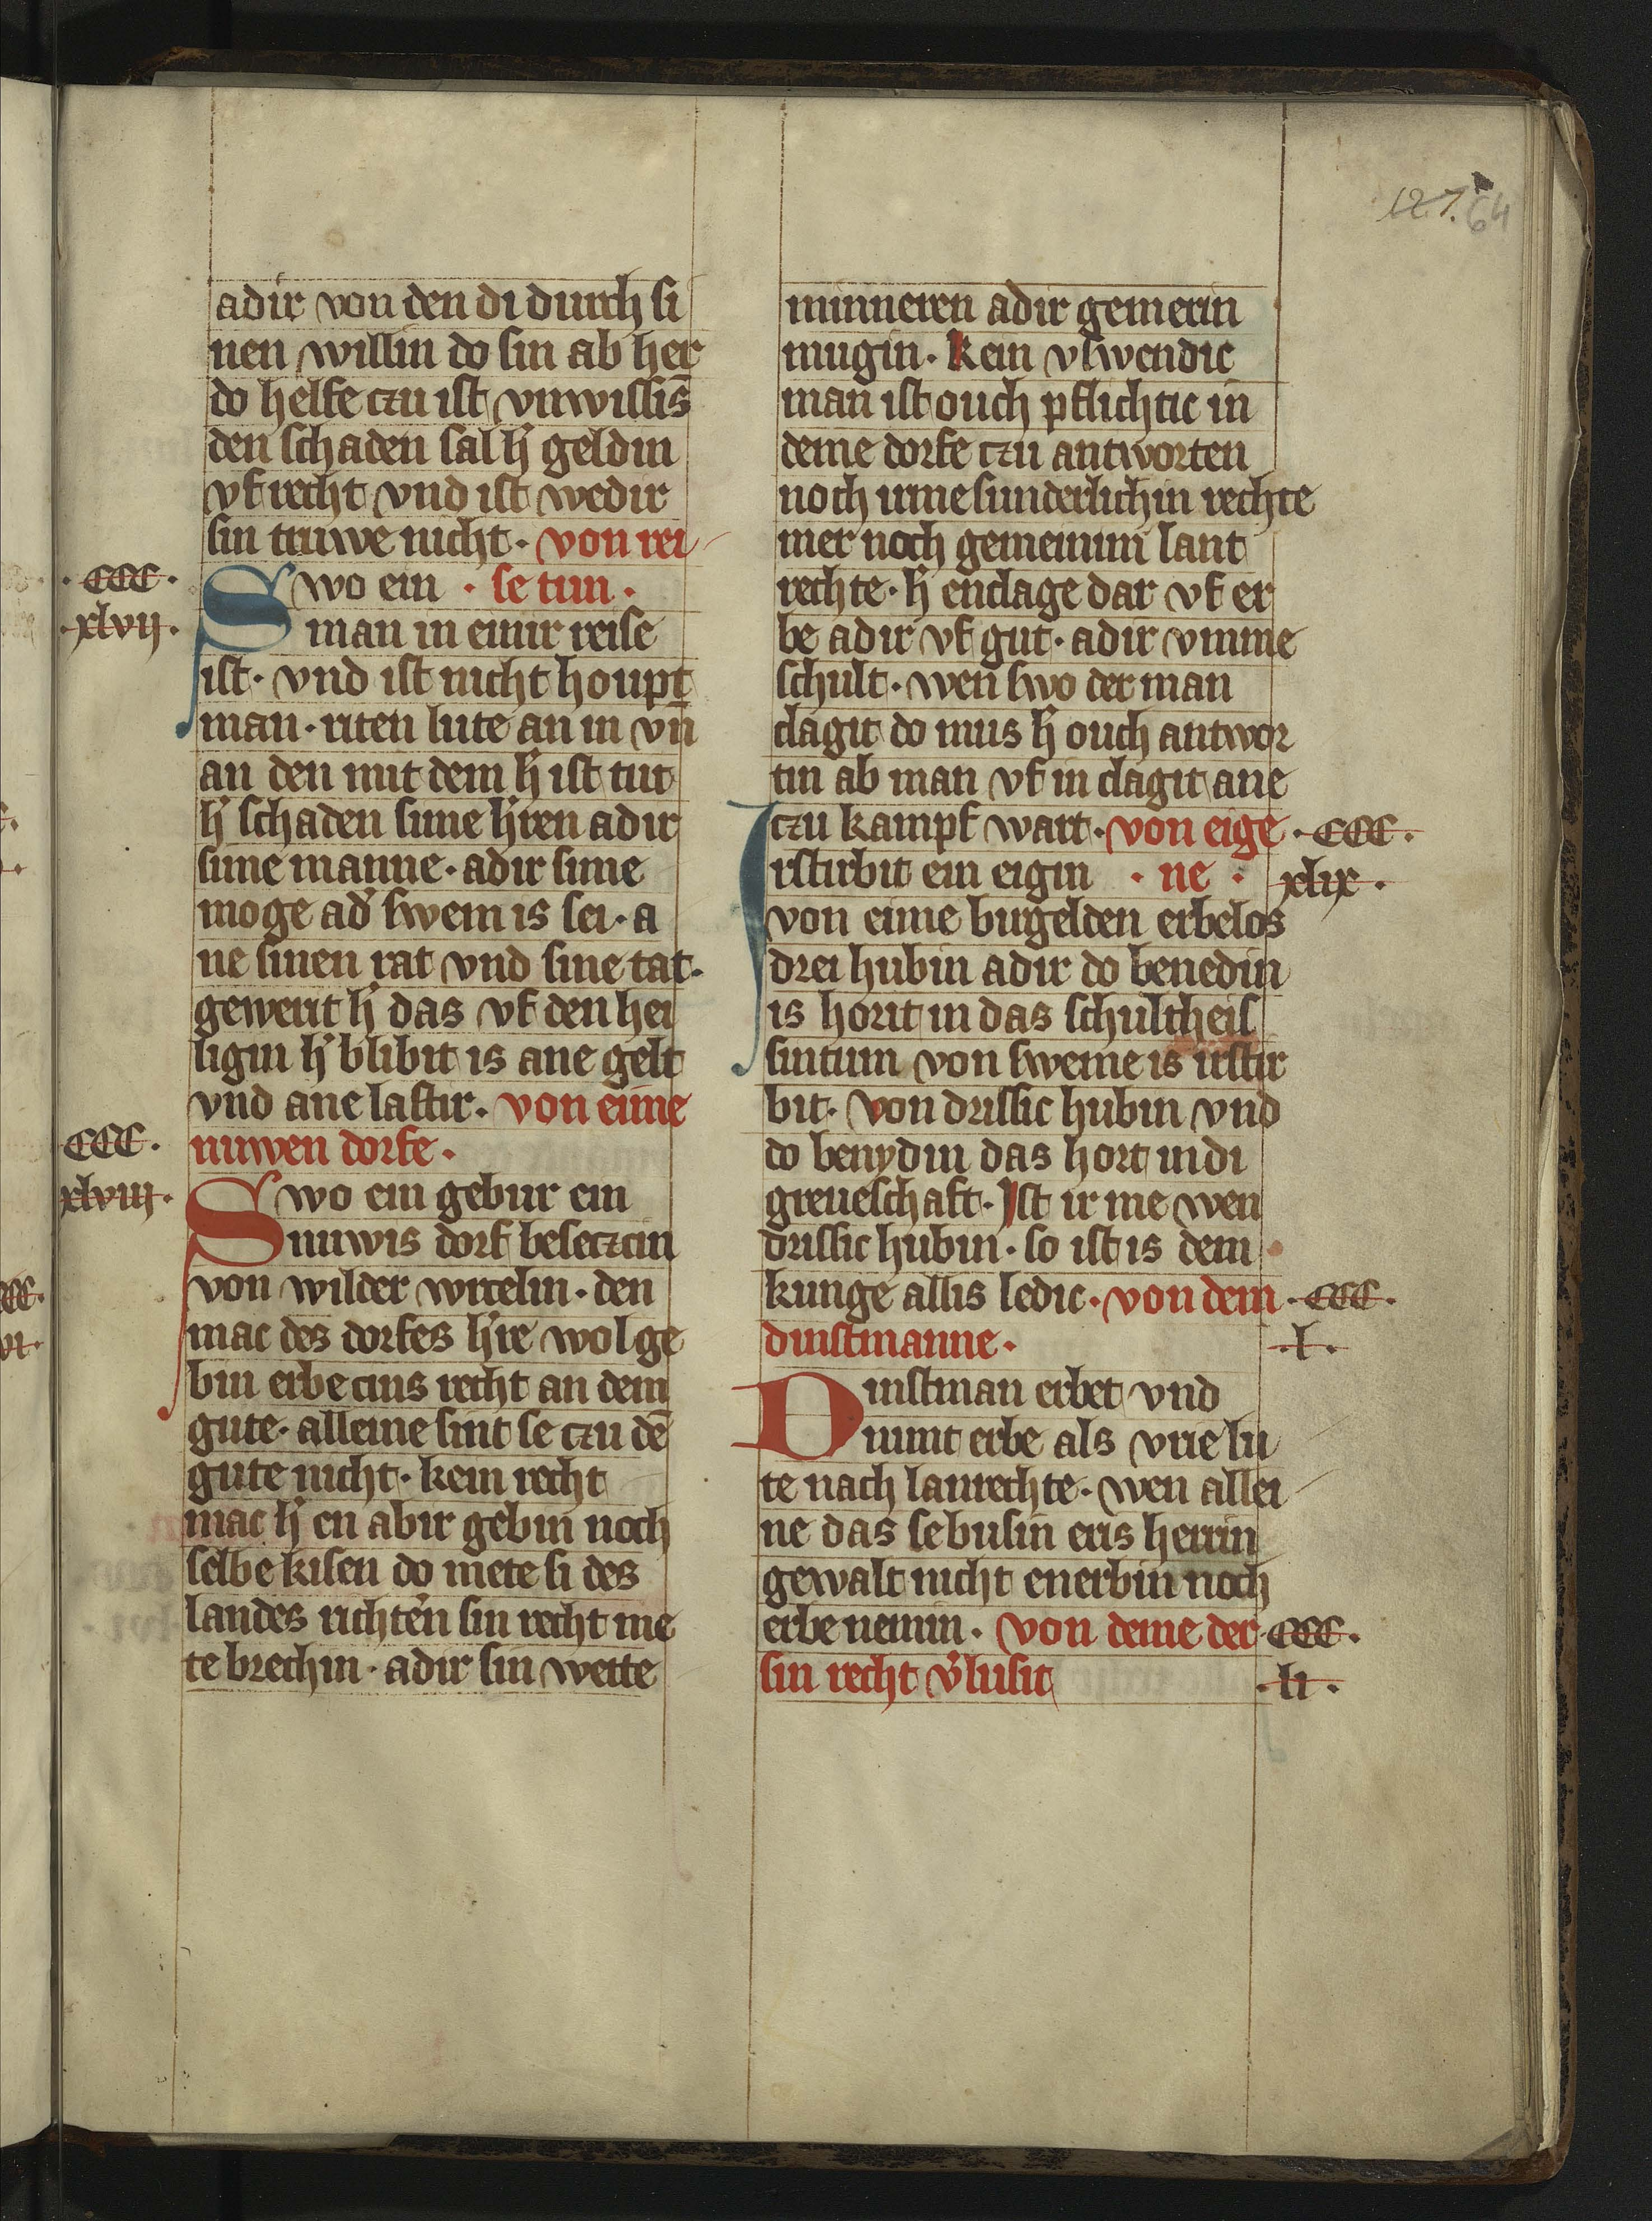 127. 64
adir von den di durch si
nen willin do sin ab her
do helfe czu ist vnwissīs
den schaden sal h̓ geldin
vf recht vnd ist wedir
sin truwe nicht · von rei
· CCC ·
· xlvij ·
Swo ein · se tun ·
man in einir reise
ist · vnd ist nicht houpt
man · riten lute an in vn̄
an den mit dem h̓ ist tut
h̓ schaden sime h̓ren adir
sime manne · adir sime
moge ad̓ swem is sei · a
ne sinen rat vnd sine tat ·
gewerit h̓ das vf den hei
ligin h̓ blibit is ane gelt
vnd ane lastir · von eime
CCC ·
nuwen dorfe ·
xlviij ·
Swo ein gebur ein
nuwis dorf beseczcin
von wilder wrcelin · den
mac des dorfes h̓re wol ge
bin erbe cins recht an dem
gute · alleine sint se czu dē
gute nicht · kein recht
mac h̓ en abir gebin noch
selbe kisen do mete si des
landes richtern sin recht me
te brechin · adir sin wette
minneren adir gemerin
mugin · Kein vswendic
man ist ouch pflichtic in
deme dorfe czu antworten
noch irme sunderlichin rechte
mer noch gemeinim lant
rechte · h̓ enclage dar vf er
be adir vf gut · adir vmme
schult · wen swo der man
clagit do mus h̓ ouch antwor
tin ab man vf in clagit ane
czu kampf wart · von eige
· CCC ·
Irstirbit ein eigin · ne ·
xlix ·
von eime birgelden erbelos
drei hubin adir do benedin
is horit in das schultheis
sintum von sweme is irstir
bit · von drissic hubin vnd
do benydin das hort in di
greueschaft · Ist ir me wen
drissic hubin · so ist is dem
kunge allis ledic · von dem
· CCC ·
dinstmanne ·
· l ·
Dinstman erbet vnd
nimt erbe als vrie lu
te nach lanrechte · wen allei
ne das se busin eris herrin
gewalt nicht enerbin noch
erbe nemin · von deme der
· CCC ·
sin recht v̓lusit
· li ·